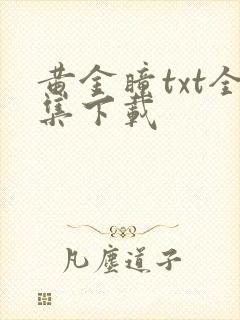 黄金瞳txt全
集下载
凡尘道子